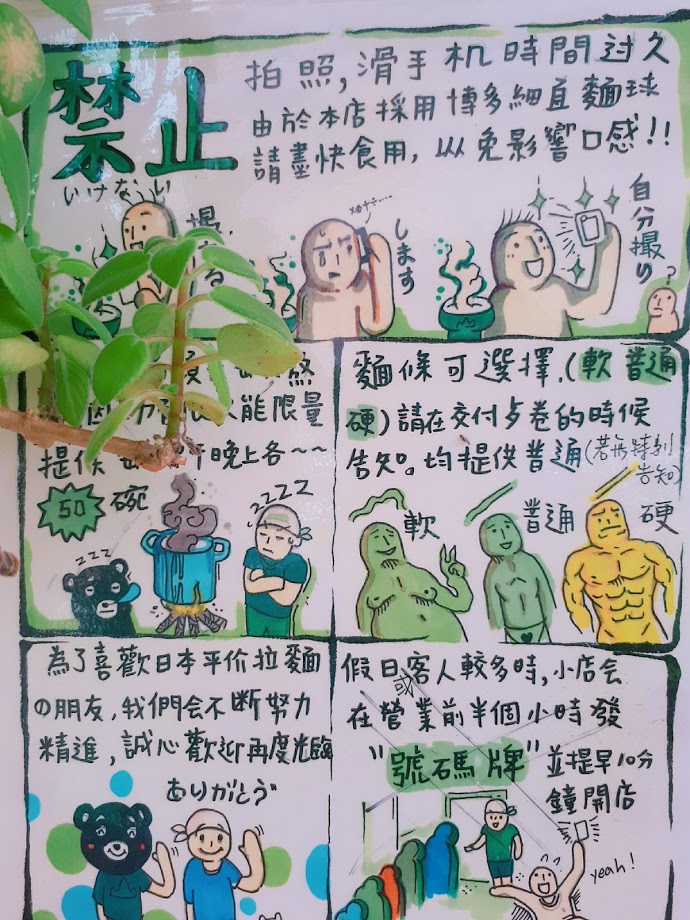 禁止
いけない
拍照,滑手机時間过久
由於本店採用博多細直麵球
請盡快食用,以免影響口感!!
します
自分撮り
?
能限量
提供
晚上各~~
50 碗
zzz
zzzz
麵條可選擇.(軟 普通
硬)請在交付歺卷的時候
告知。均提供普通(若無特別
告知)
軟
普通
硬
為了喜歡日本平价拉麵
の朋友,我們会不断努力
精進,誠心歡迎再度光臨
ありがとう
假日客人較多時,小店会
或
在營業前半個小時發
"號碼牌"並提早10分
鐘開店
yeah!